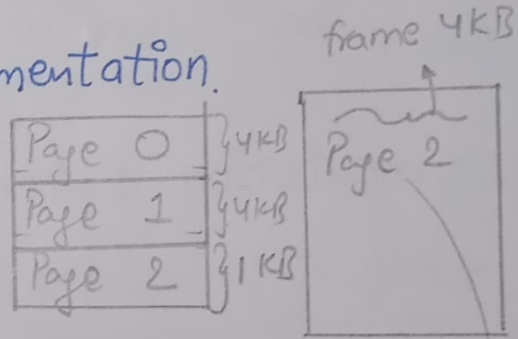 frame 4KB
mentation.
Page 0 4KB
Page 2
Page 1 4KB
Page 2 1 KB